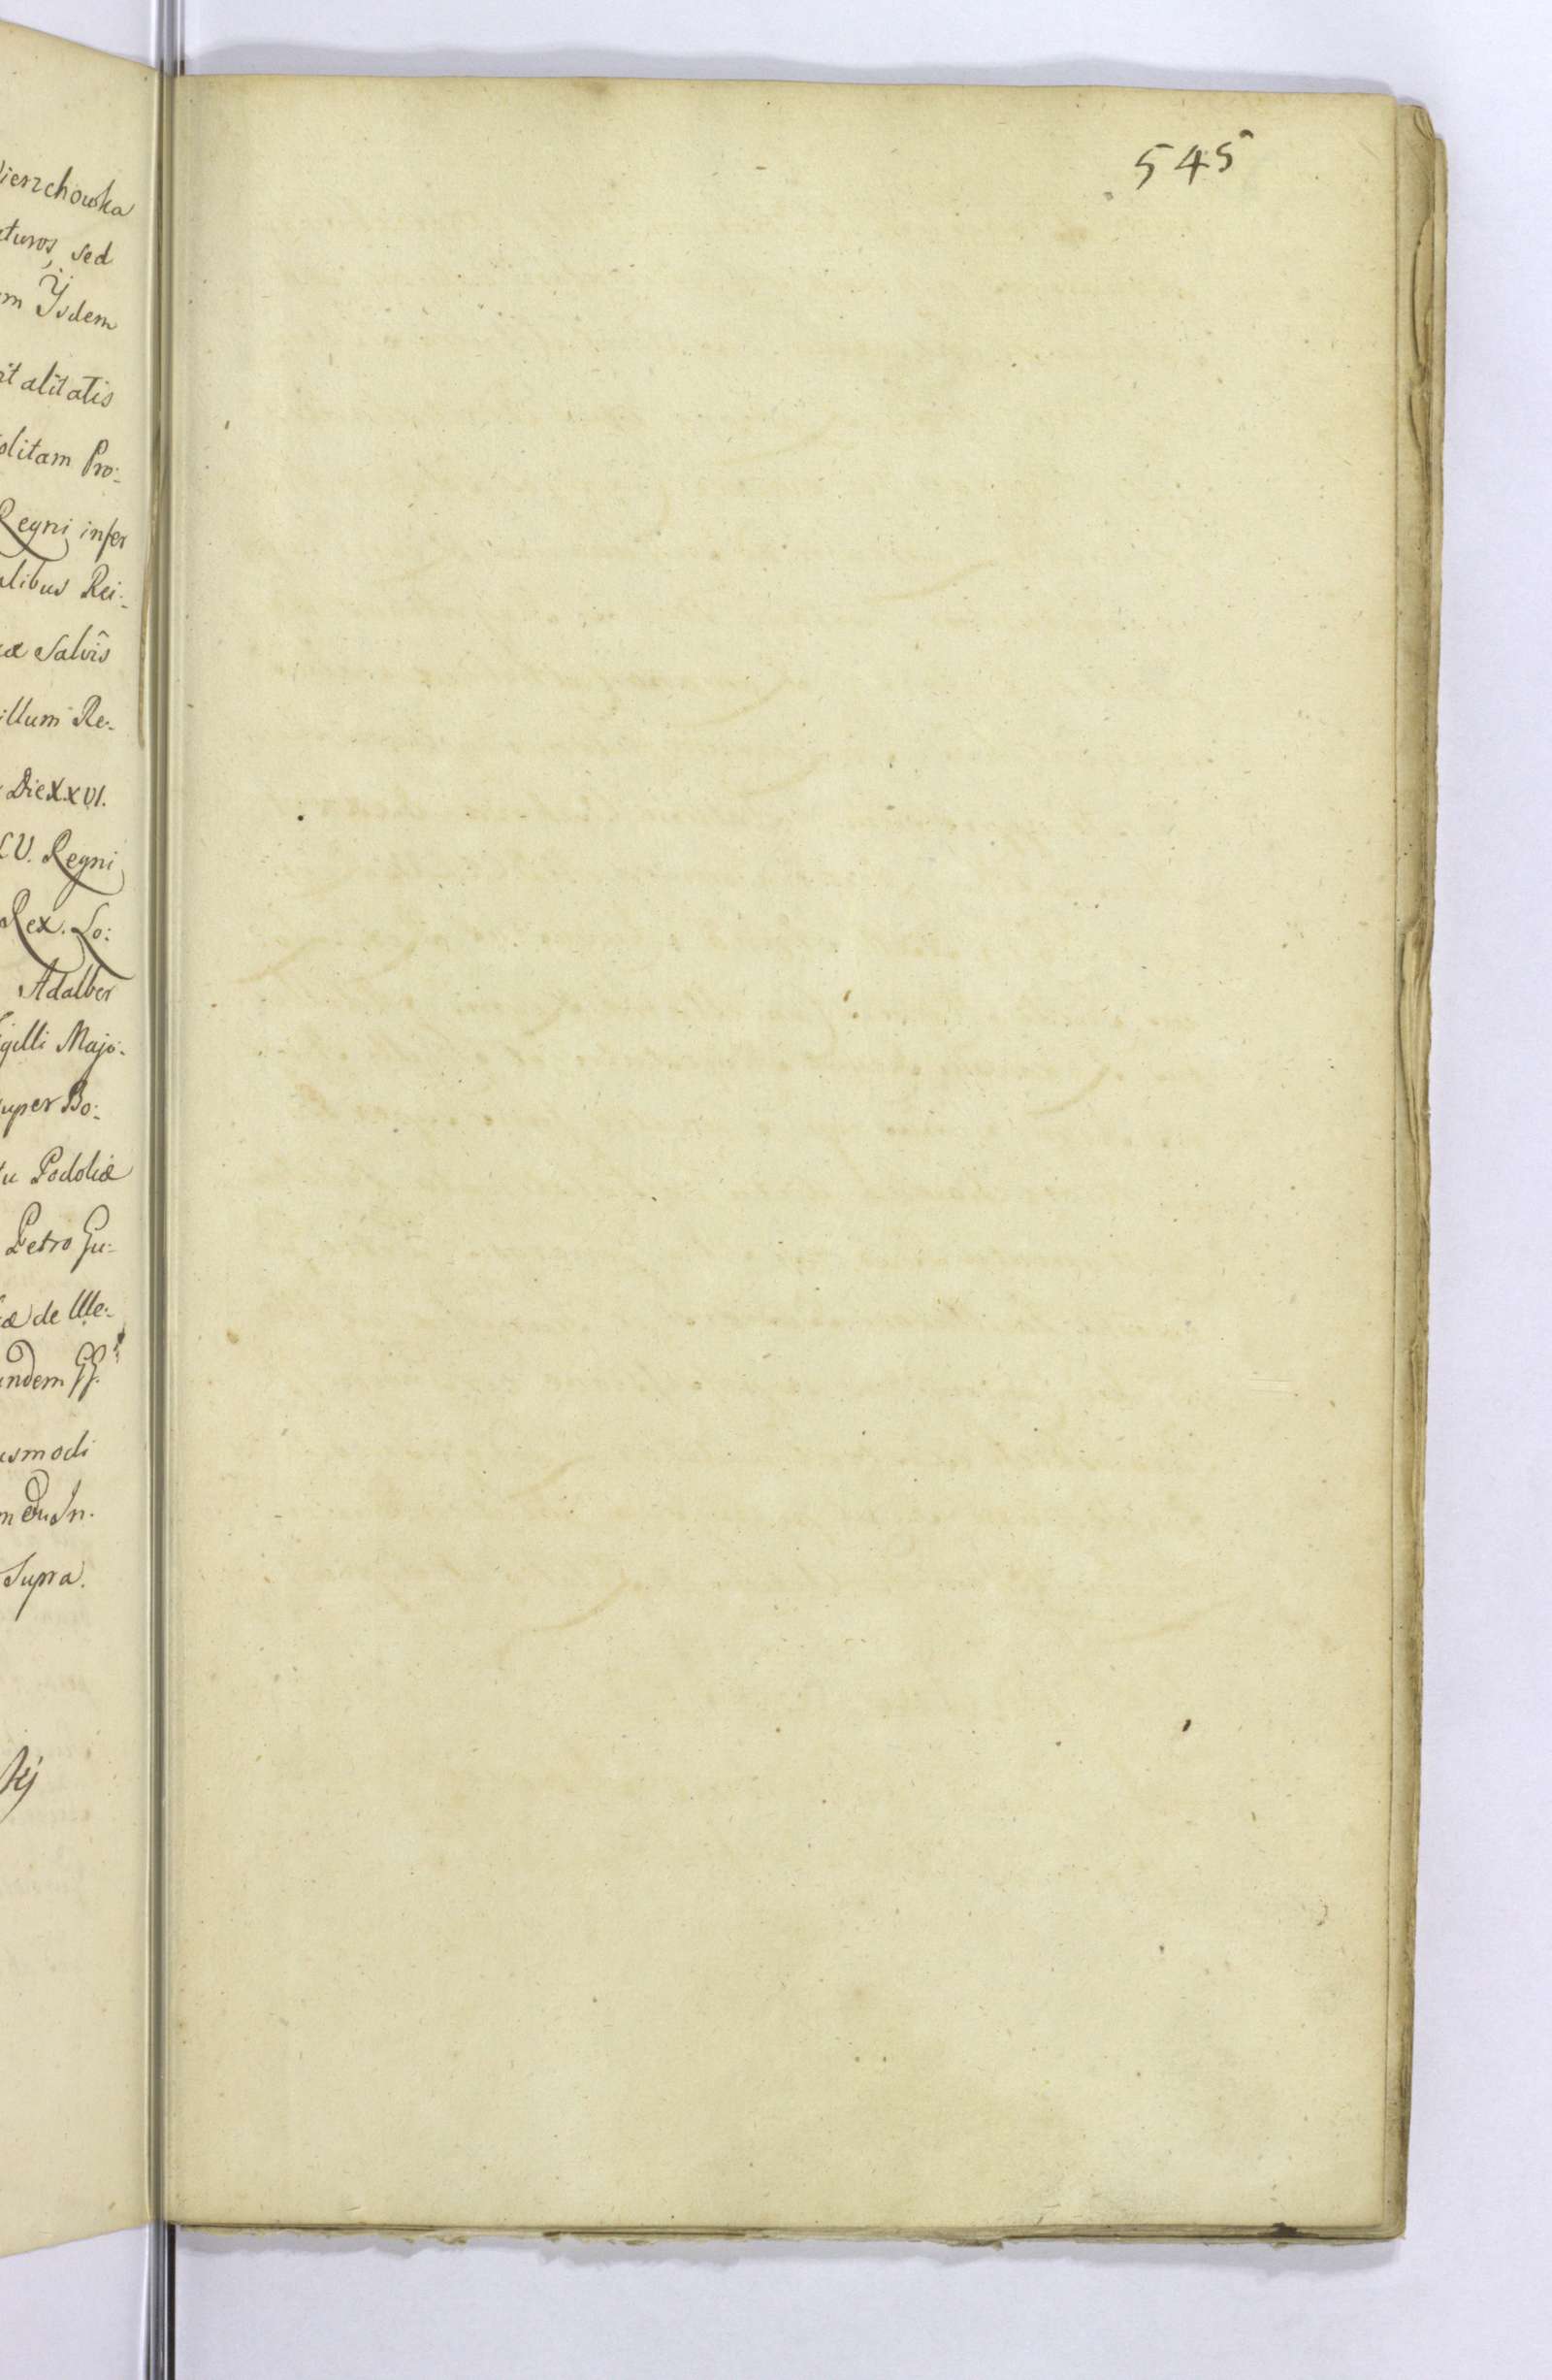 ierzchowska
turos, sed
m Ÿsdem
italitatis
olitam Pro:
Regni infer
alibus Rei:
æ Salvis
illum Re:
Die XXVI.
LV. Regni
Rex. Lo:
Adalber
igilli Majo:
uper Bo:
tu Podoliæ
Petro Gu:
æ de
undem
usmodi
In.
Supra.
kij
545